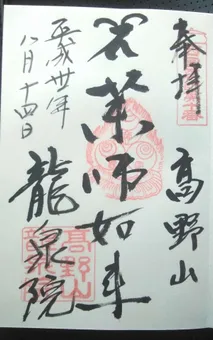 奉拝
高野山
薬師如来
龍泉院
平成卅年
八月十四日
高野山
龍泉院